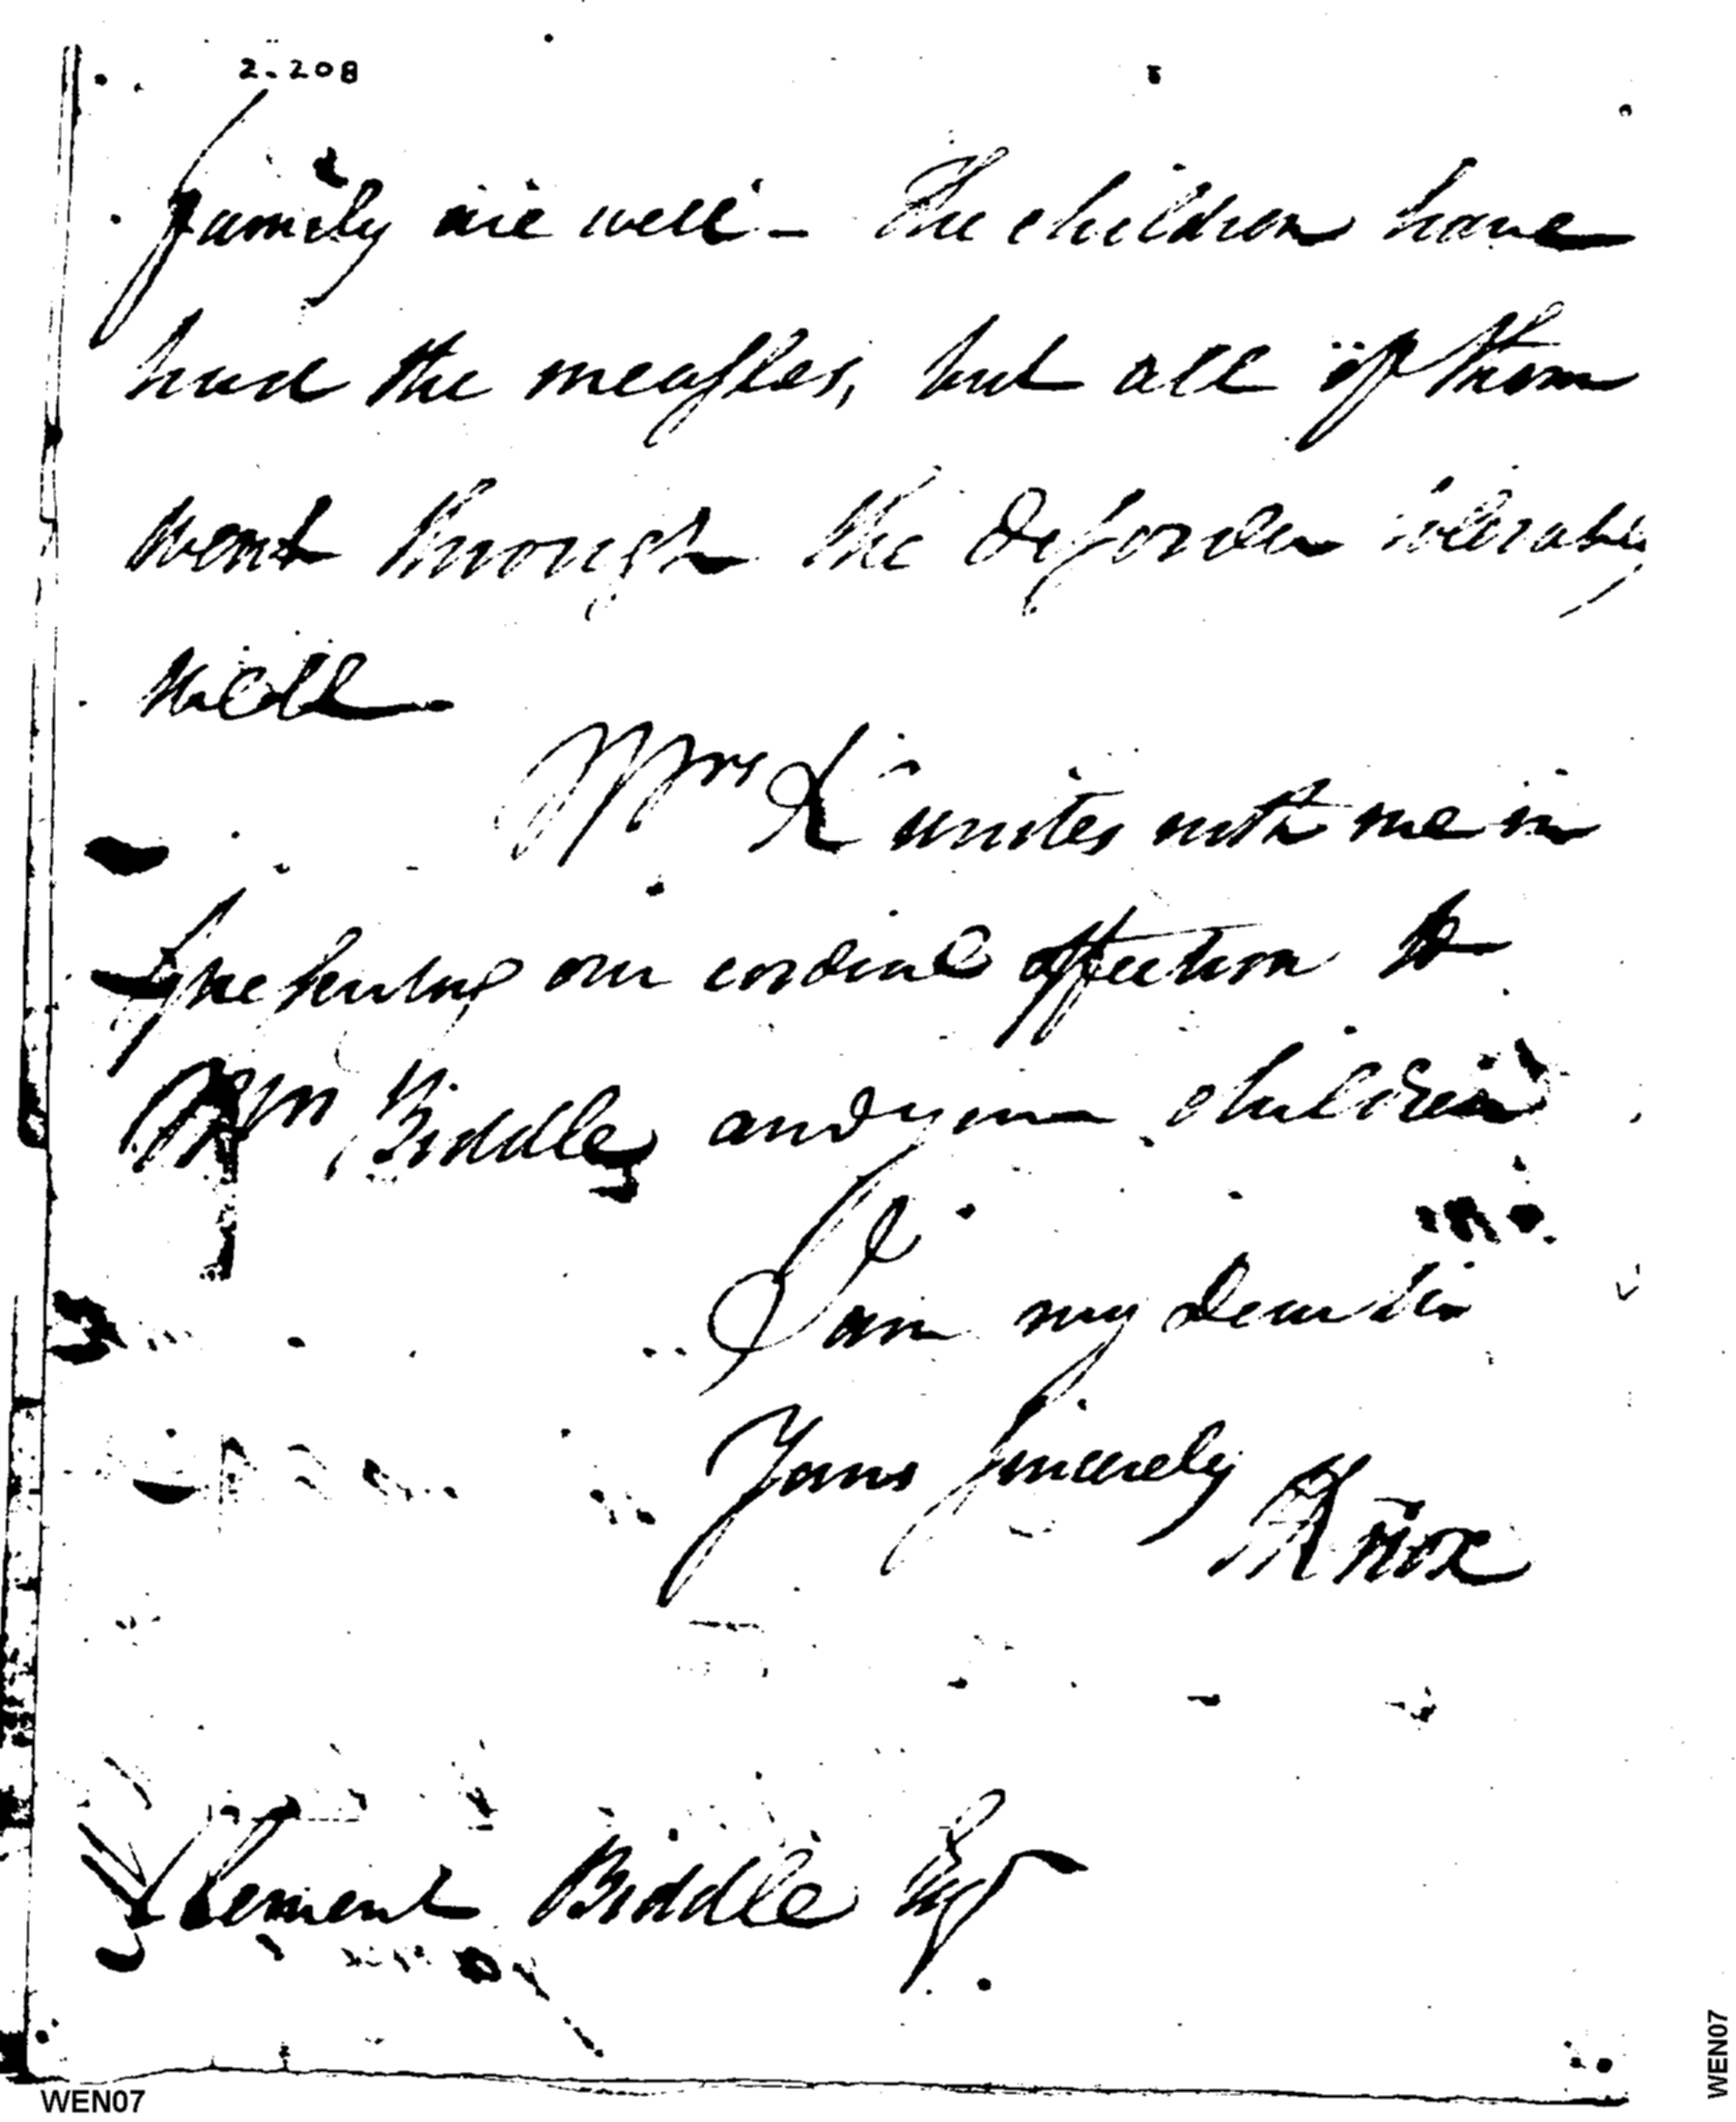 2-208
family are well – The children have
had the measles, but all of them
went through the disorder tolerably
well
Mrs K unites with me in
presenting our cordial affection to
Mrs Biddle and your children
I am my dear sir
Yours sincerely
Knox
Clement Biddle Esq
WEN07
WEN07